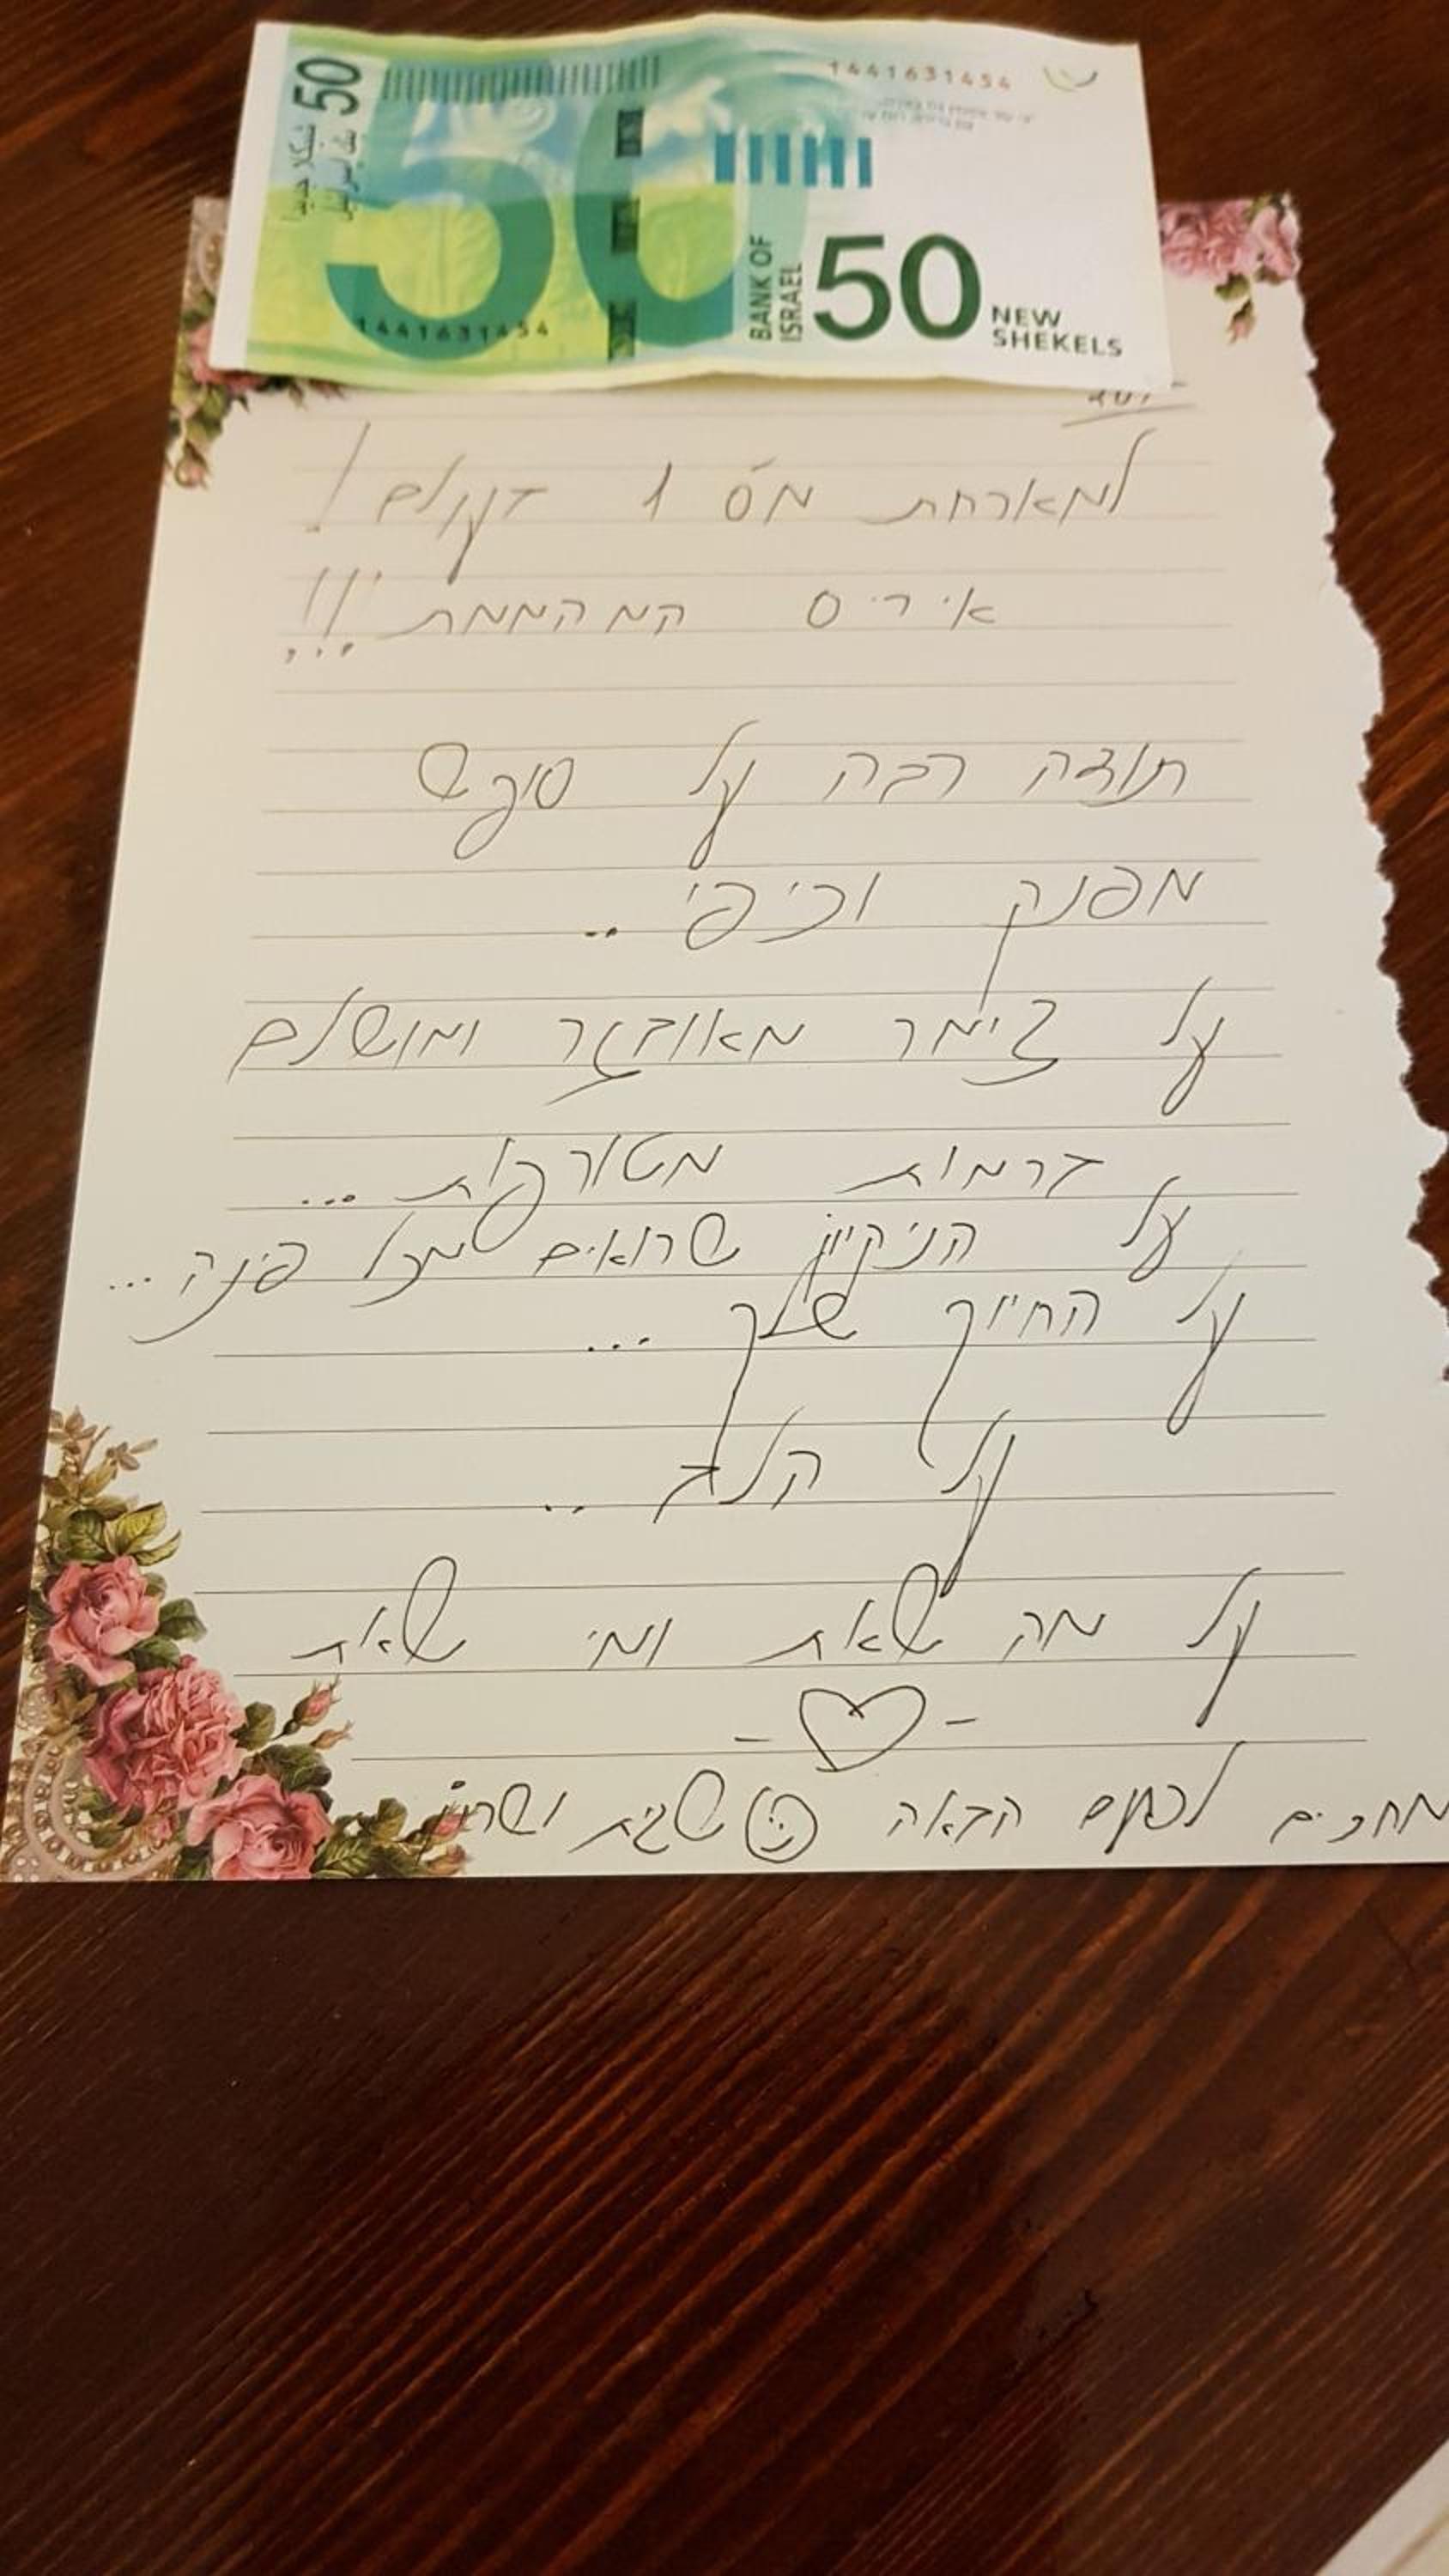 50
شيكلا جديدا
بنك إسرائيل
1441631454
1441631454
BANK OF
ISRAEL
50
NEW
SHEKELS
למארחת מס 1 בעולם !
איריס המהממת !!!
תודה רבה על סופש
מפנק וכיפי ..
על צימר מאובזר ומושלם
ברמות מטורפות ...
על הניקיון שרואים מכל פינה ...
על החיוך שלך ...
על הלב ..
על מה שאת ומי שאת
מחכים לפעם הבאה שגית ושרון